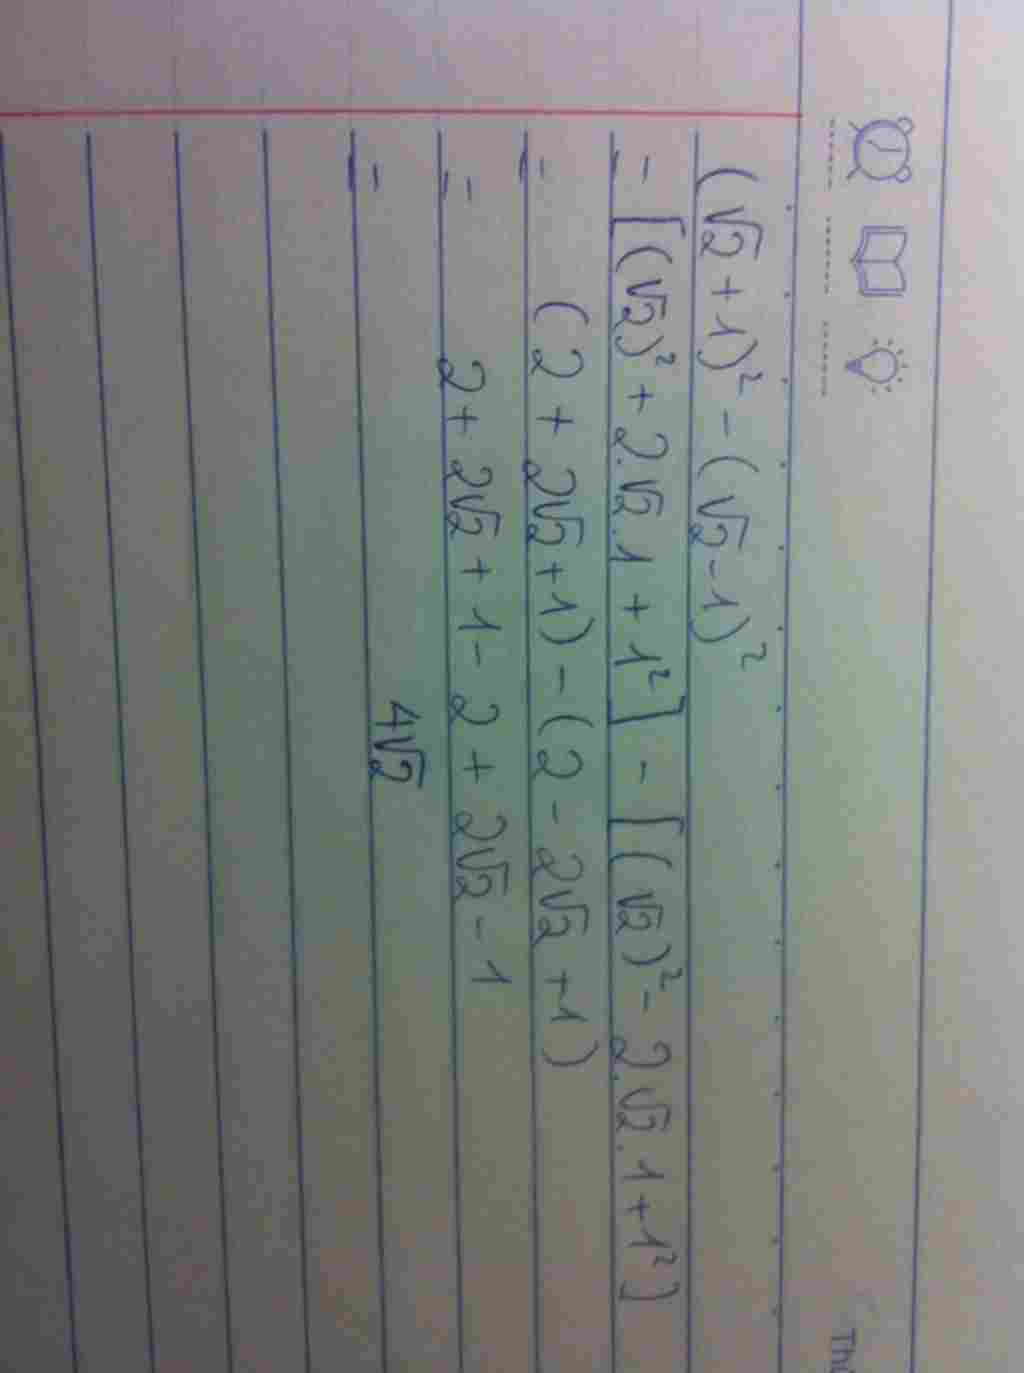 (√2 + 1)² - (√2 - 1)²
= [(√2)² + 2.√2.1 + 1²] - [(√2)² - 2.√2.1 + 1²]
= (2 + 2√2 + 1) - (2 - 2√2 + 1)
= 2 + 2√2 + 1 - 2 + 2√2 - 1
= 4√2